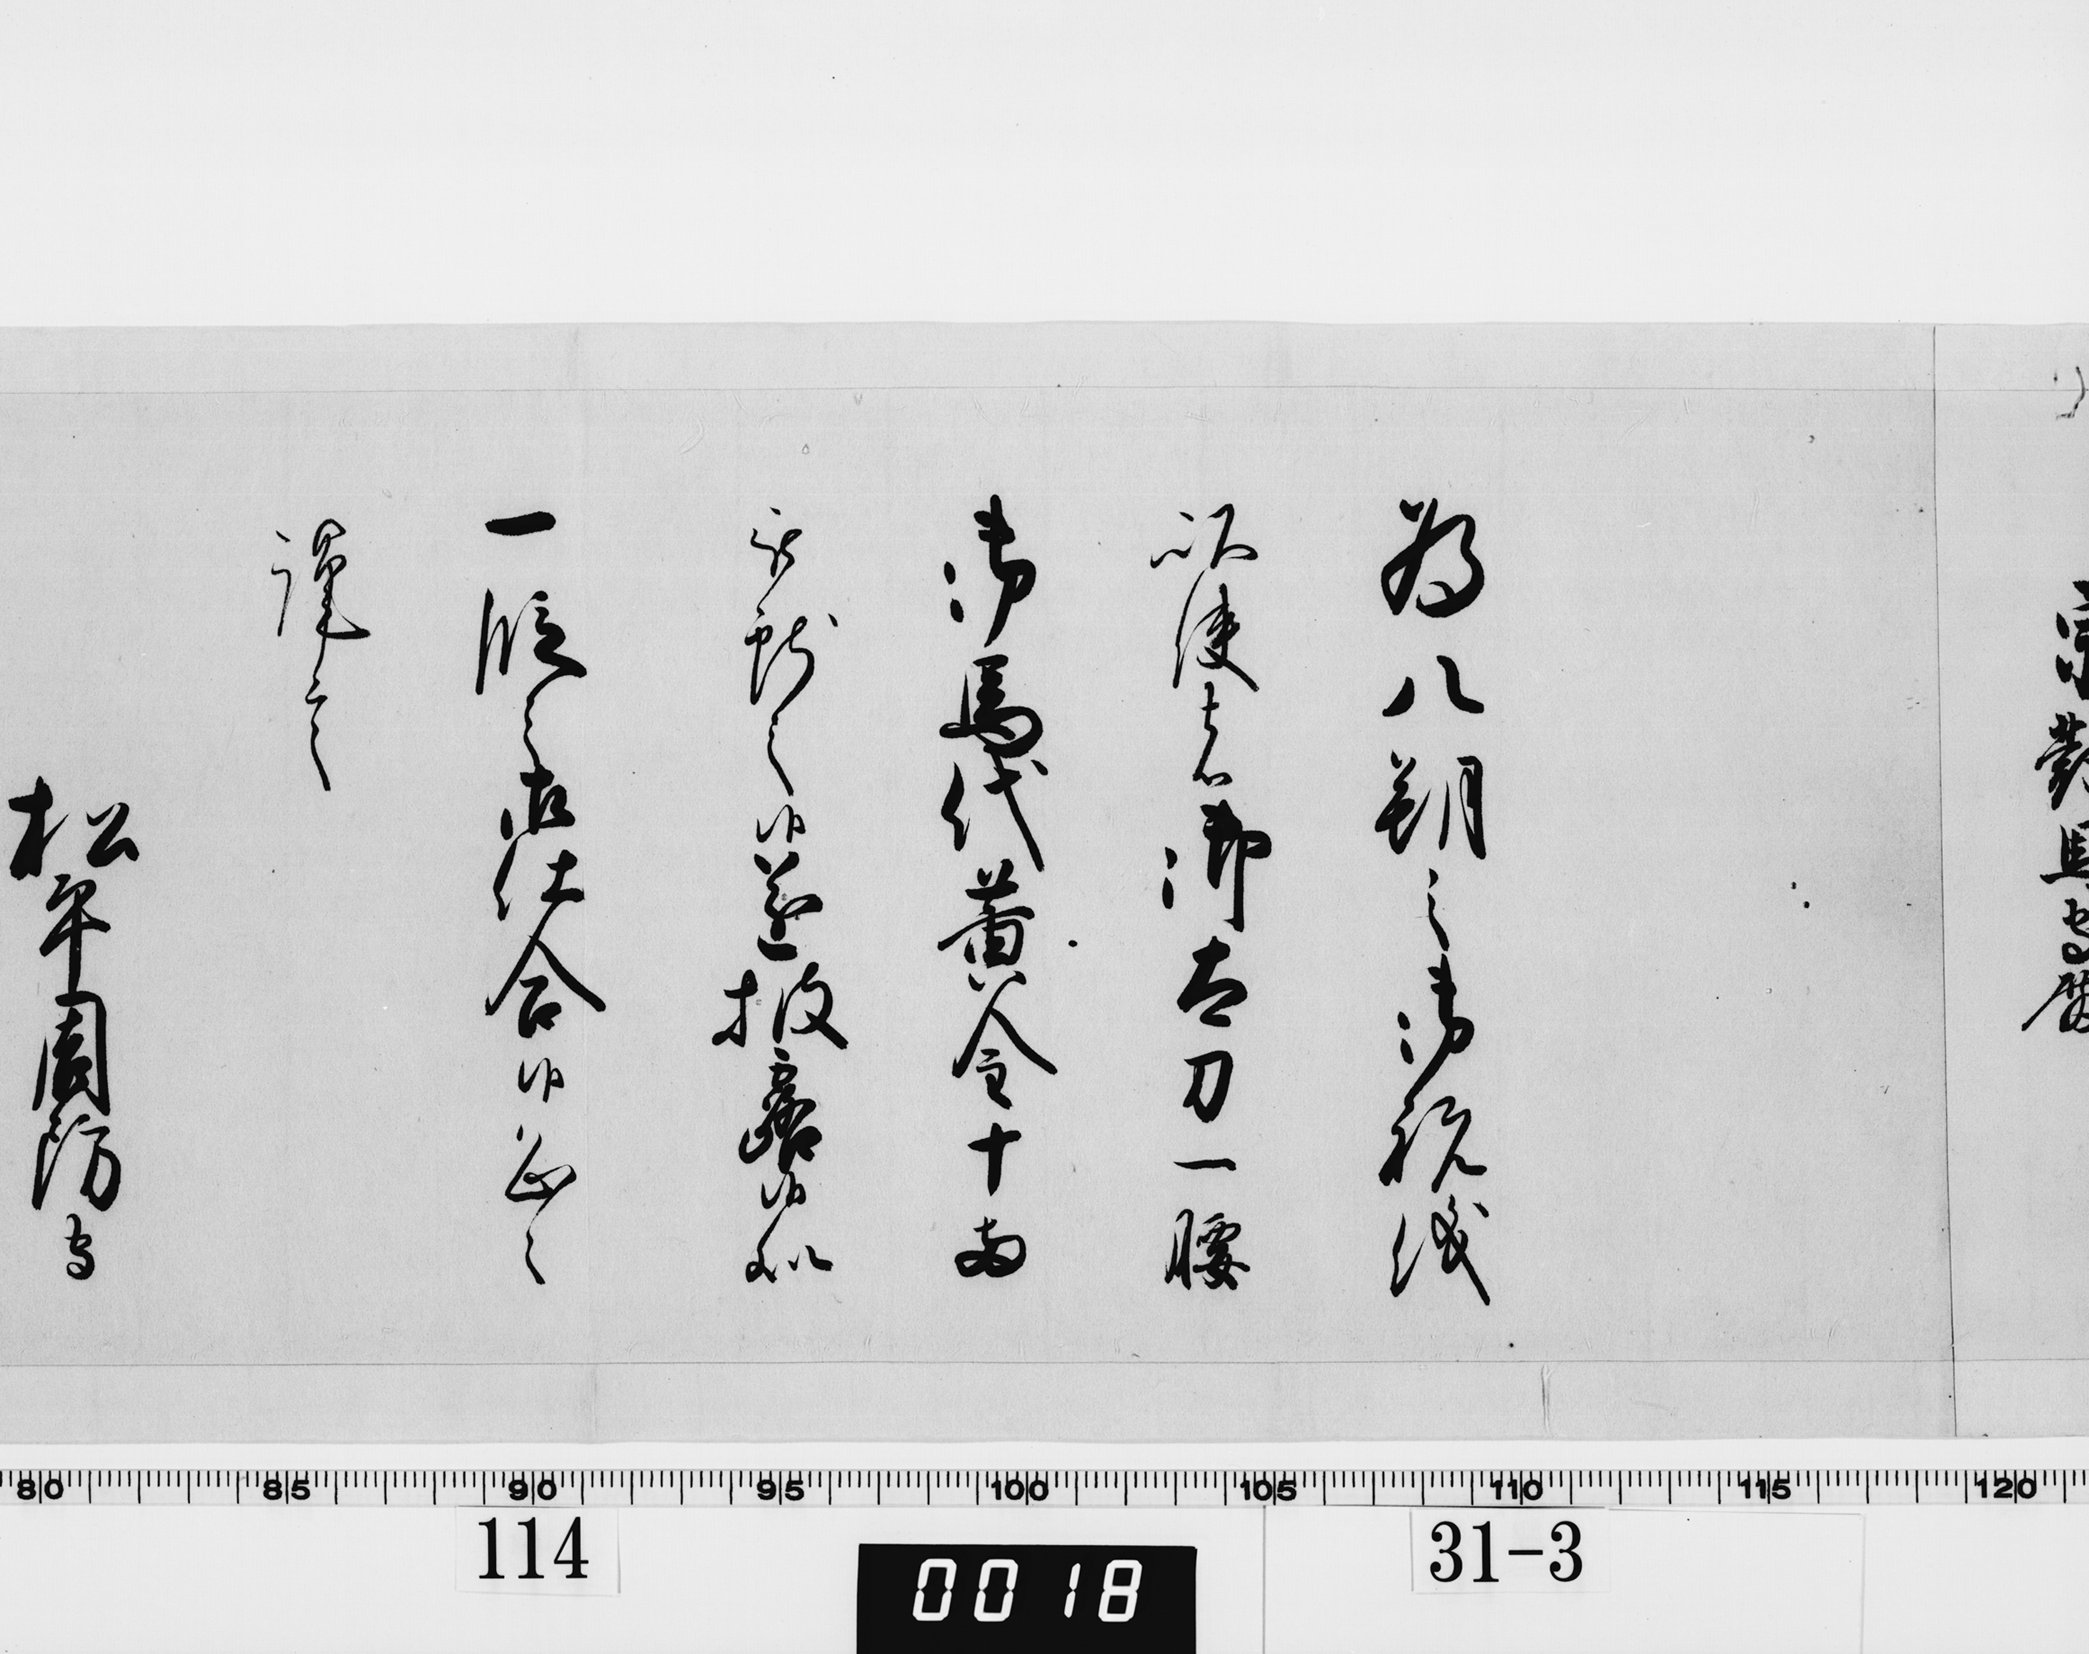 宗對馬守殿
為八朔之御祝儀
以使者御太刀一腰
御馬代黄金十両
被献之候遂披露候処
一段之御仕合候恐々
謹言
松平周防守
80 85 90 95 100 105 110 115 120
114
0018
31-3